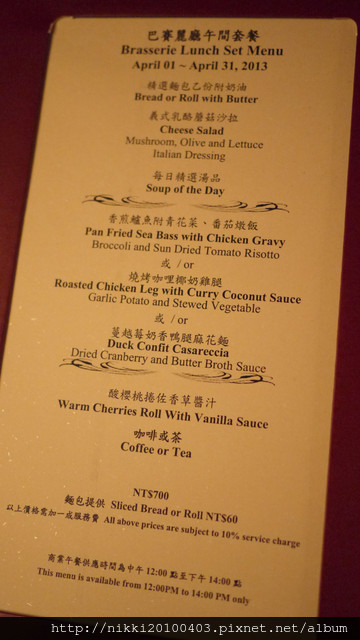 巴賽麗廳午間套餐
Brasserie Lunch Set Menu
April 01 ~ April 31, 2013
精選麵包乙份附奶油
Bread or Roll with Butter
義式乳酪蘑菇沙拉
Cheese Salad
Mushroom, Olive and Lettuce
Italian Dressing
每日精選湯品
Soup of the Day
香煎鱸魚附青花菜、番茄燉飯
Pan Fried Sea Bass with Chicken Gravy
Broccoli and Sun Dried Tomato Risotto
或 / or
燒烤咖哩椰奶雞腿
Roasted Chicken Leg with Curry Coconut Sauce
Garlic Potato and Stewed Vegetable
或 / or
蔓越莓奶香鴨腿麻花麵
Duck Confit Casareccia
Dried Cranberry and Butter Broth Sauce
酸櫻桃捲佐香草醬汁
Warm Cherries Roll With Vanilla Sauce
咖啡或茶
Coffee or Tea
NT$700
麵包提供 Sliced Bread or Roll NT$60
以上價格需加一成服務費 All above prices are subject to 10% service charge
商業午餐供應時間為中午 12:00 點至下午 14:00 點
This menu is available from 12:00PM to 14:00 PM only
http://nikki20100403.pixnet.net/album